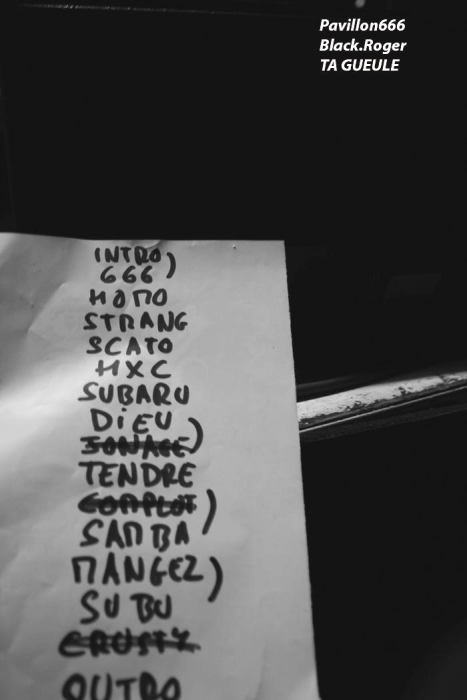 Pavillon666
Black.Roger
TA GUEULE
INTRO)
666
HOMO
STRANG
SCATO
HXC
SUBARU
DiEU
JONACE)
TENDRE
COMPLOT)
SAMBA
MANGEZ)
SUBU
CRUSTY
OUTRO